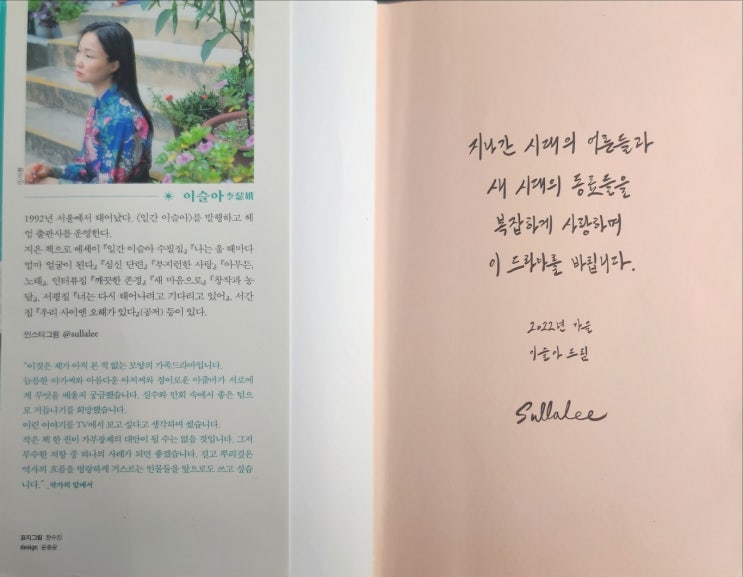 이슬아 李瑟娥
1992년 서울에서 태어났다. 〈일간 이슬아〉를 발행하고 헤
엄 출판사를 운영한다.
지은 책으로 에세이 『일간 이슬아 수필집』 『나는 울 때마다
엄마 얼굴이 된다』 『심신 단련』 『부지런한 사랑』 『아무튼,
노래』, 인터뷰집 『깨끗한 존경』 『새 마음으로』 『창작과 농
담』, 서평집 『너는 다시 태어나려고 기다리고 있어』, 서간
집 『우리 사이엔 오해가 있다』(공저) 등이 있다.
인스타그램 @sullalee
"이것은 제가 아직 본 적 없는 모양의 가족드라마입니다.
늠름한 아가씨와 아름다운 아저씨와 경이로운 아줌마가 서로에
게 무엇을 배울지 궁금했습니다. 실수와 만회 속에서 좋은 팀으
로 거듭나기를 희망했습니다.
이런 이야기를 TV에서 보고 싶다고 생각하며 썼습니다.
작은 책 한 권이 가부장제의 대안이 될 수는 없을 것입니다. 그저
무수한 저항 중 하나의 사례가 되면 좋겠습니다. 길고 뿌리깊은
역사의 흐름을 명랑하게 거스르는 인물들을 앞으로도 쓰고 싶습
니다." _작가의 말에서
표지그림 전수진
design 윤종윤
지나간 시대의 어른들과
새 시대의 동료들을
복잡하게 사랑하며
이 드라마를 바칩니다.
2022년 가을
이슬아 드림
Sullalee